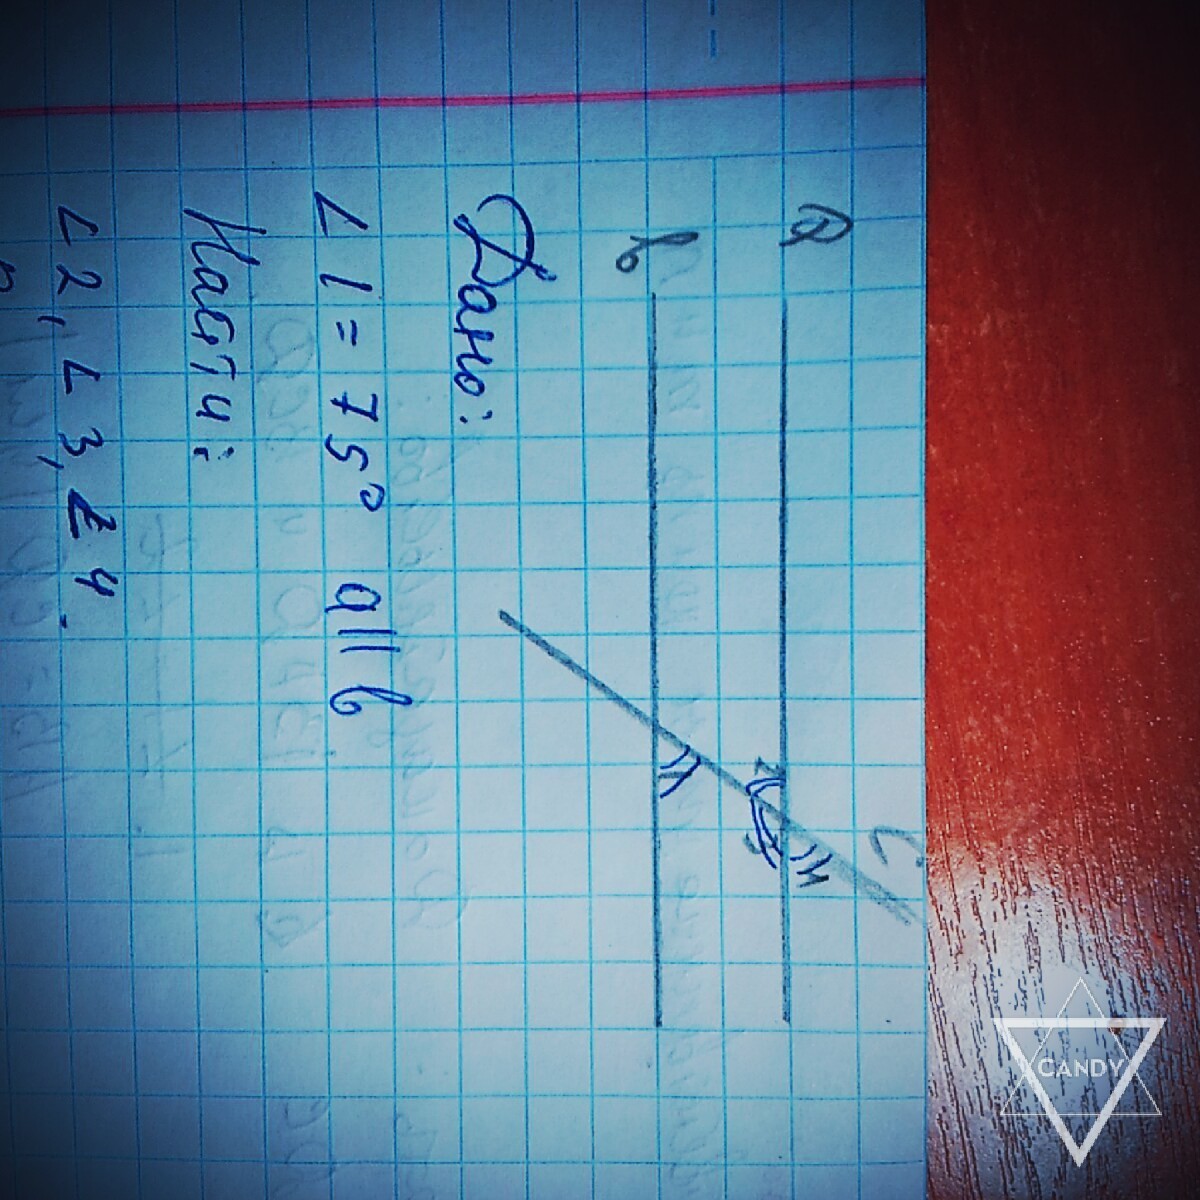 a
b
c
2
3
4
1
Дано:
∠1 = 75° a||b
Найти:
∠2, ∠3, ∠4.
CANDY